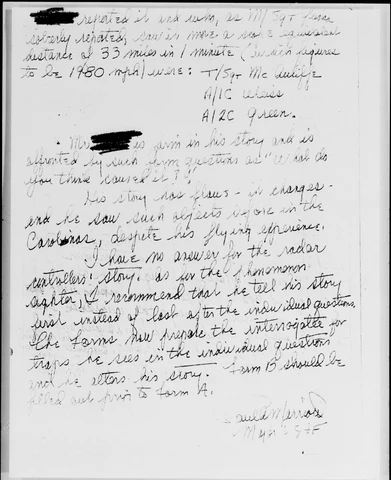 reported it and seen, as M/Sgt
soberly reported, saw it move a scope equivalent
distance of 33 miles in 1 minute (which figures
to be 1980 mph) were: T/Sgt Mc
A/1C
A/2C Green.
Mr. is firm in his story and is
affronted by such form questions as "What do
you think caused it?"
His story has flaws - in changes -
and he saw such objects before in the
Carolinas, despite his flying experience.
I have no answer for the radar
controllers' story. as for the phenomenon
sighter, I recommend that he tell his story
first instead of last after the individual questions.
The forms now prepare the interrogatee for
traps he sees in the individual questions
and he alters his story. Form B should be
filled out prior to Form A.